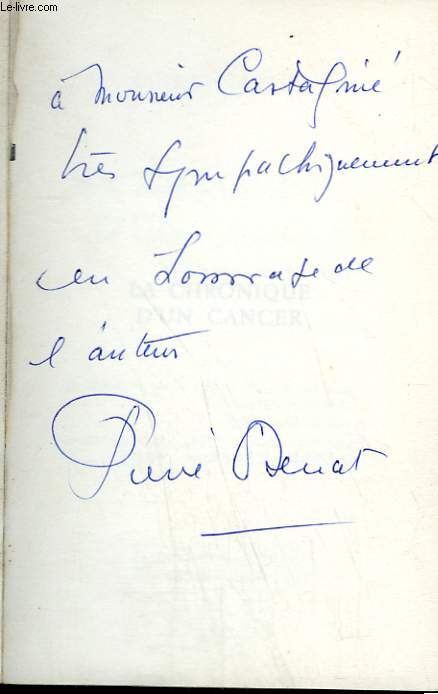 Le-livre.com
à Monsieur Castagné
très sympathiquement
en hommage de
l'auteur
LA CHRONIQUE
D'UN CANCER
Pierre